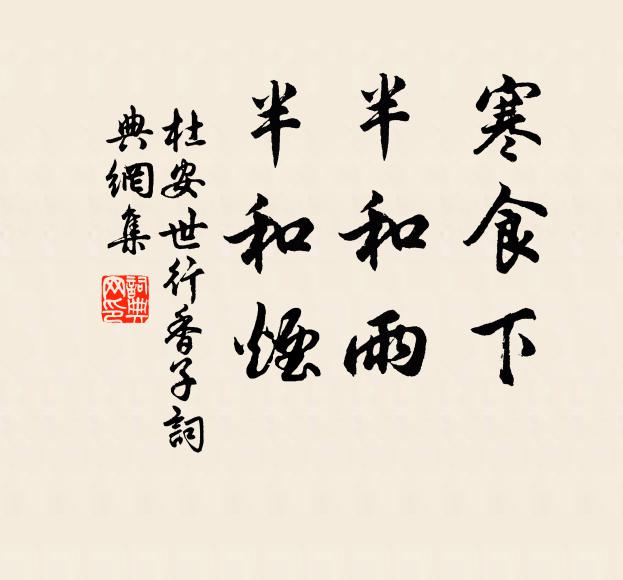 寒食下
半和雨
半和煙
杜安世行香子詞
典網集
詞典
网印